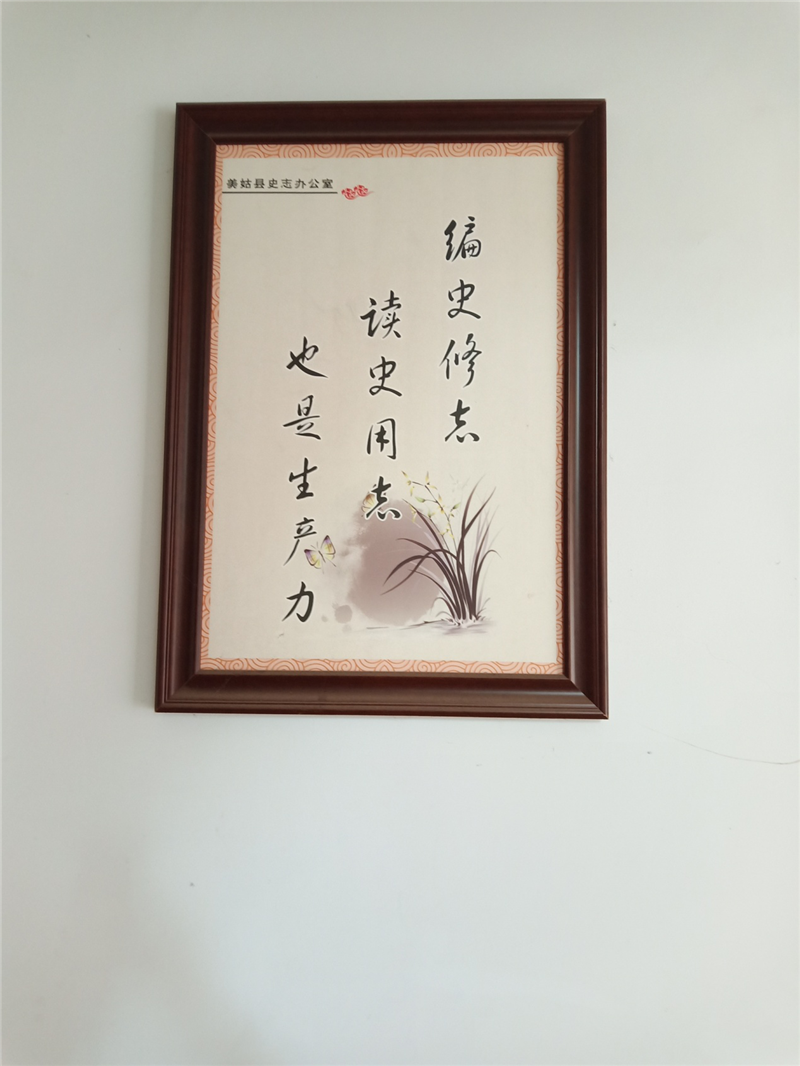 美姑县史志办公室
编史修志
读史用志
也是生产力